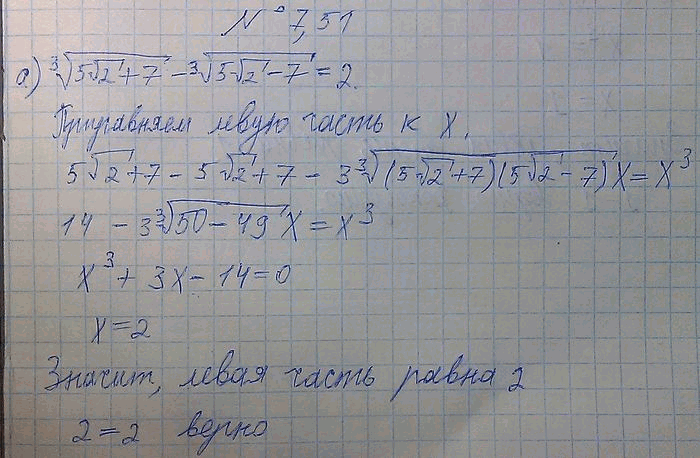 № 7,51
а) ∛(5√2 + 7) - ∛(5√2 - 7) = 2.
Приравняем левую часть к X.
5√2 + 7 - 5√2 + 7 - 3∛((5√2 + 7)(5√2 - 7)) X = X³
14 - 3∛(50 - 49) X = x³
X³ + 3X - 14 = 0
X = 2
Значит, левая часть равна 2
2 = 2 верно